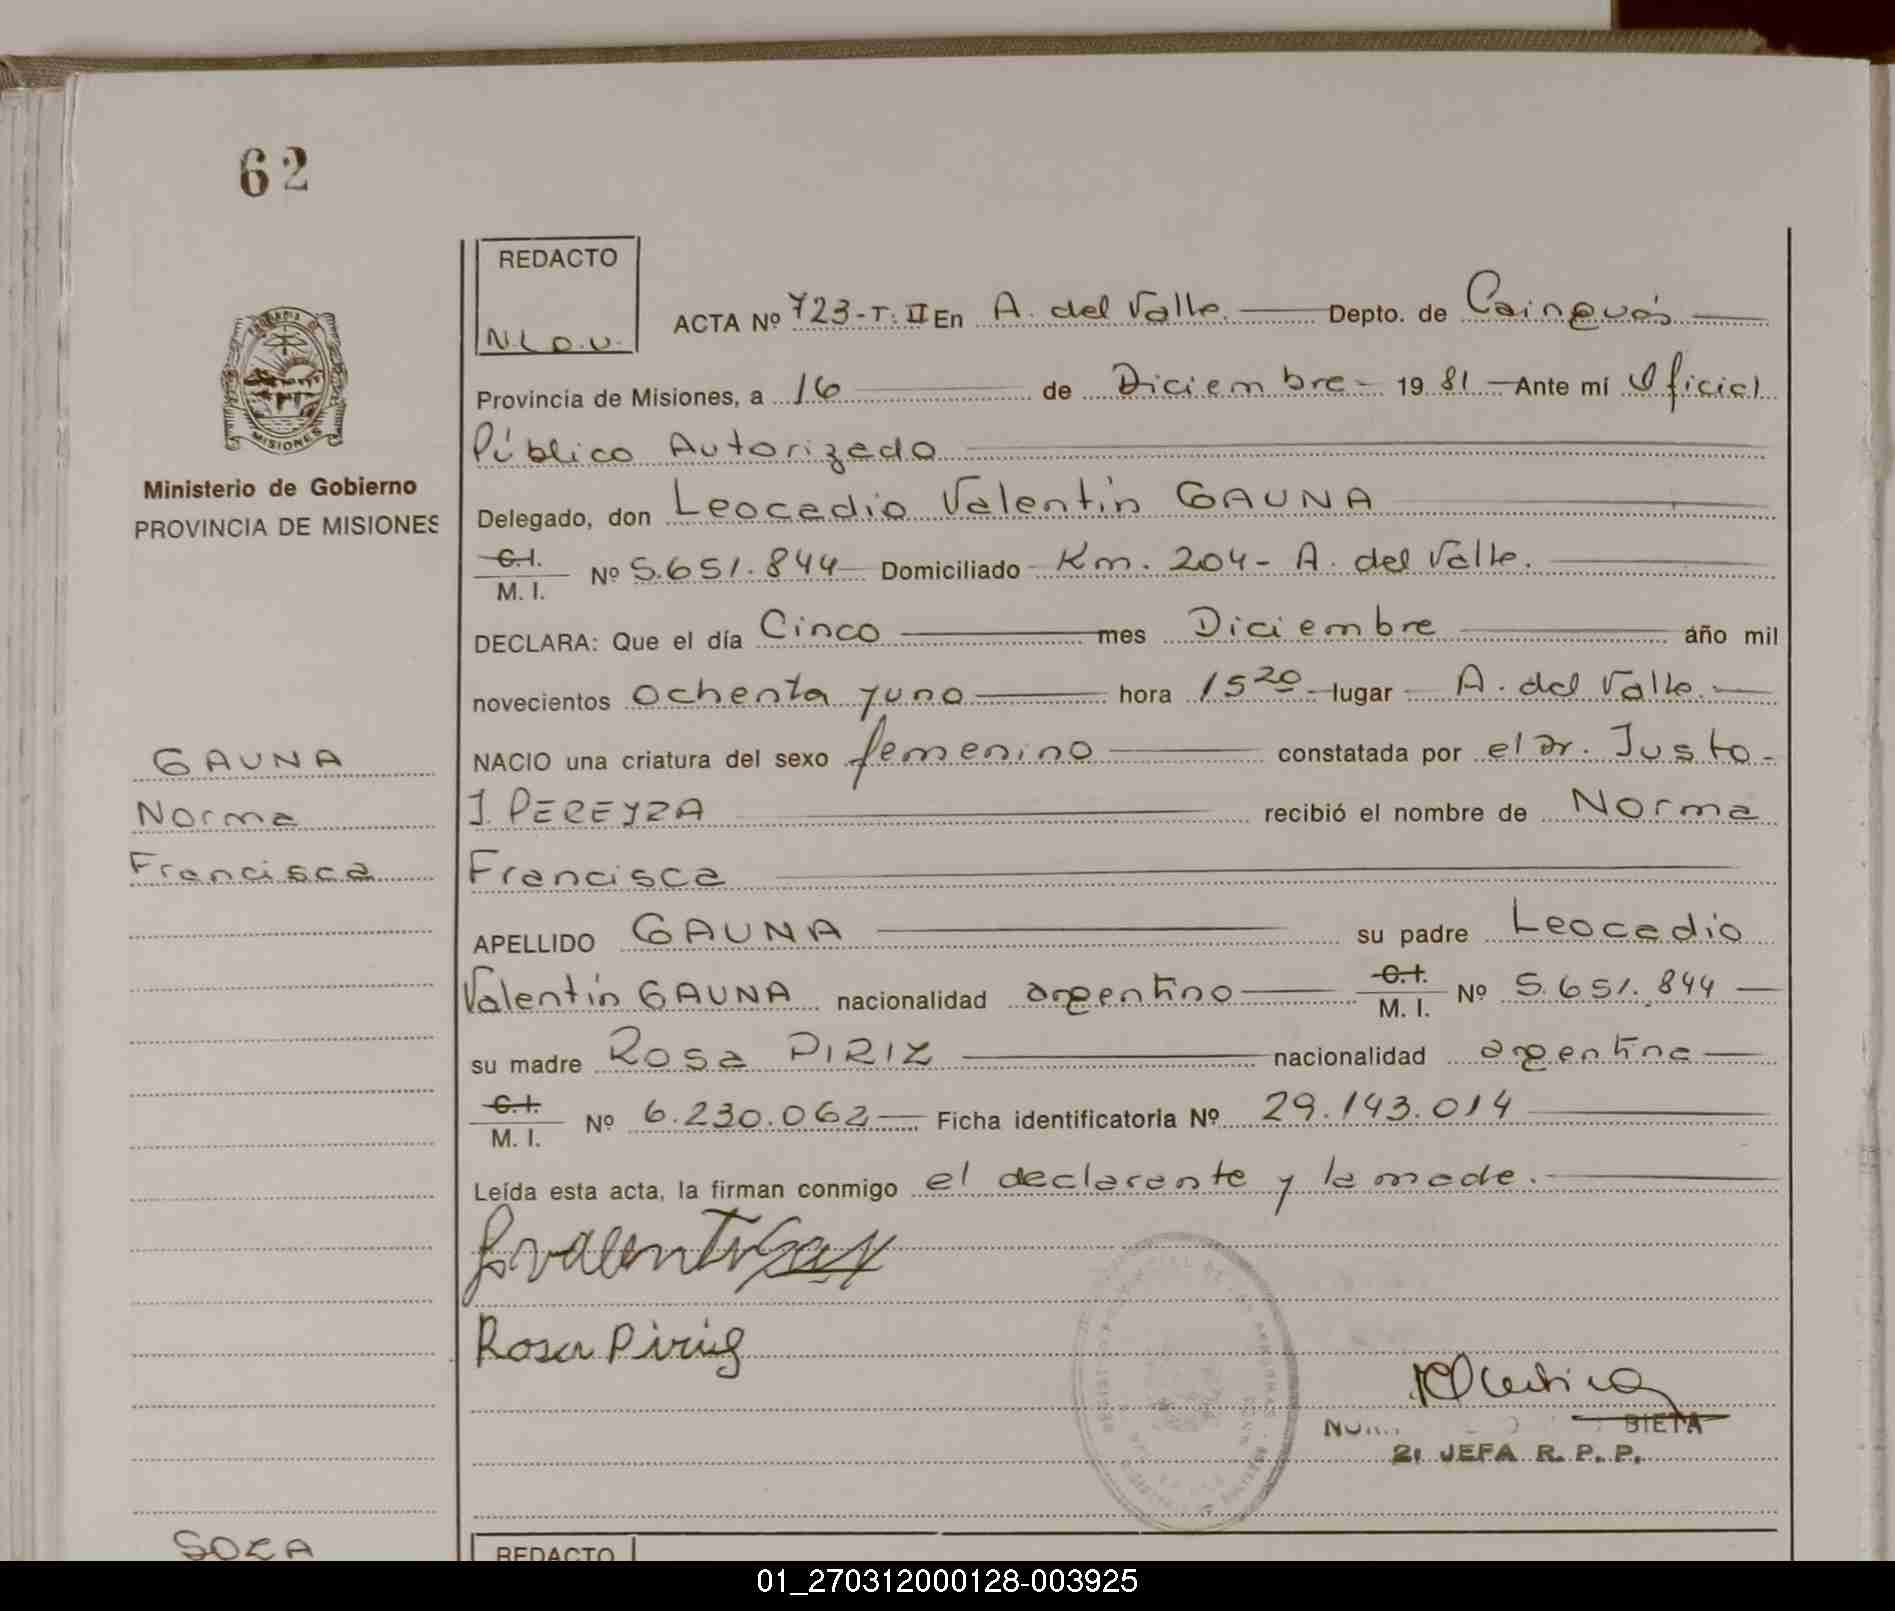 62
REDACTO
N.L.D.V.
ACTA Nº 723-T. II En A. del Valle. Depto. de Cainguás
Provincia de Misiones, a 16 de Diciembre 1981 Ante mí Oficial
Público Autorizado
MISIONES
Ministerio de Gobierno
PROVINCIA DE MISIONES
Delegado, don Leocadio Valentín GAUNA
C.I.
M. I. Nº 5.651.844 Domiciliado Km. 204- A. del Valle.
DECLARA: Que el día Cinco mes Diciembre año mil
novecientos ochenta y uno hora 15 20 lugar A. del Valle.
NACIO una criatura del sexo femenino constatada por el Dr. Justo
J. PEREYRA recibió el nombre de Norma
Francisca
GAUNA
Norma
Francisca
APELLIDO GAUNA su padre Leocadio
Valentín GAUNA nacionalidad argentino C.I. M. I. Nº 5.651.844
su madre Rosa PIRIZ nacionalidad argentina
C.I.
M. I. Nº 6.230.062 Ficha identificatoria Nº 29.143.014
Leída esta acta, la firman conmigo el declarante y la made.
Rosa Piriz
BIETA
2: JEFA R. P. P.
SOZA
REDACTO
01_270312000128-003925